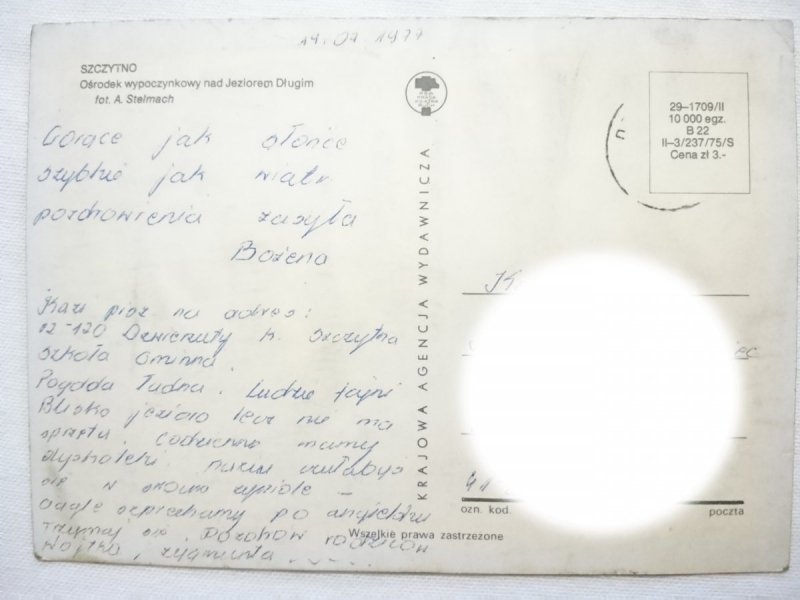 14.07.1977
SZCZYTNO
Ośrodek wypoczynkowy nad Jeziorem Długim
fot. A. Stelmach
29-1709/II
10 000 egz.
B 22
II-3/237/75/S
Cena zł 3.-
Gorące jak słońce
szybkie jak wiatr
pozdrowienia zasyła
Bożena
pisz na adres:
12-120 Dźwierzuty k. Szczytna
Szkoła Gminna.
Pogoda ładna. Ludzie fajni
Blisko jezioro lecz nie ma
sprzętu. Codziennie mamy
dyskoteki.
się w
ciągle po angielsku
Trzymaj się. Pozdrów rodziców
Wojtka, Zygmunta
KRAJOWA AGENCJA WYDAWNICZA
ozn. kod.
poczta
Wszelkie prawa zastrzeżone